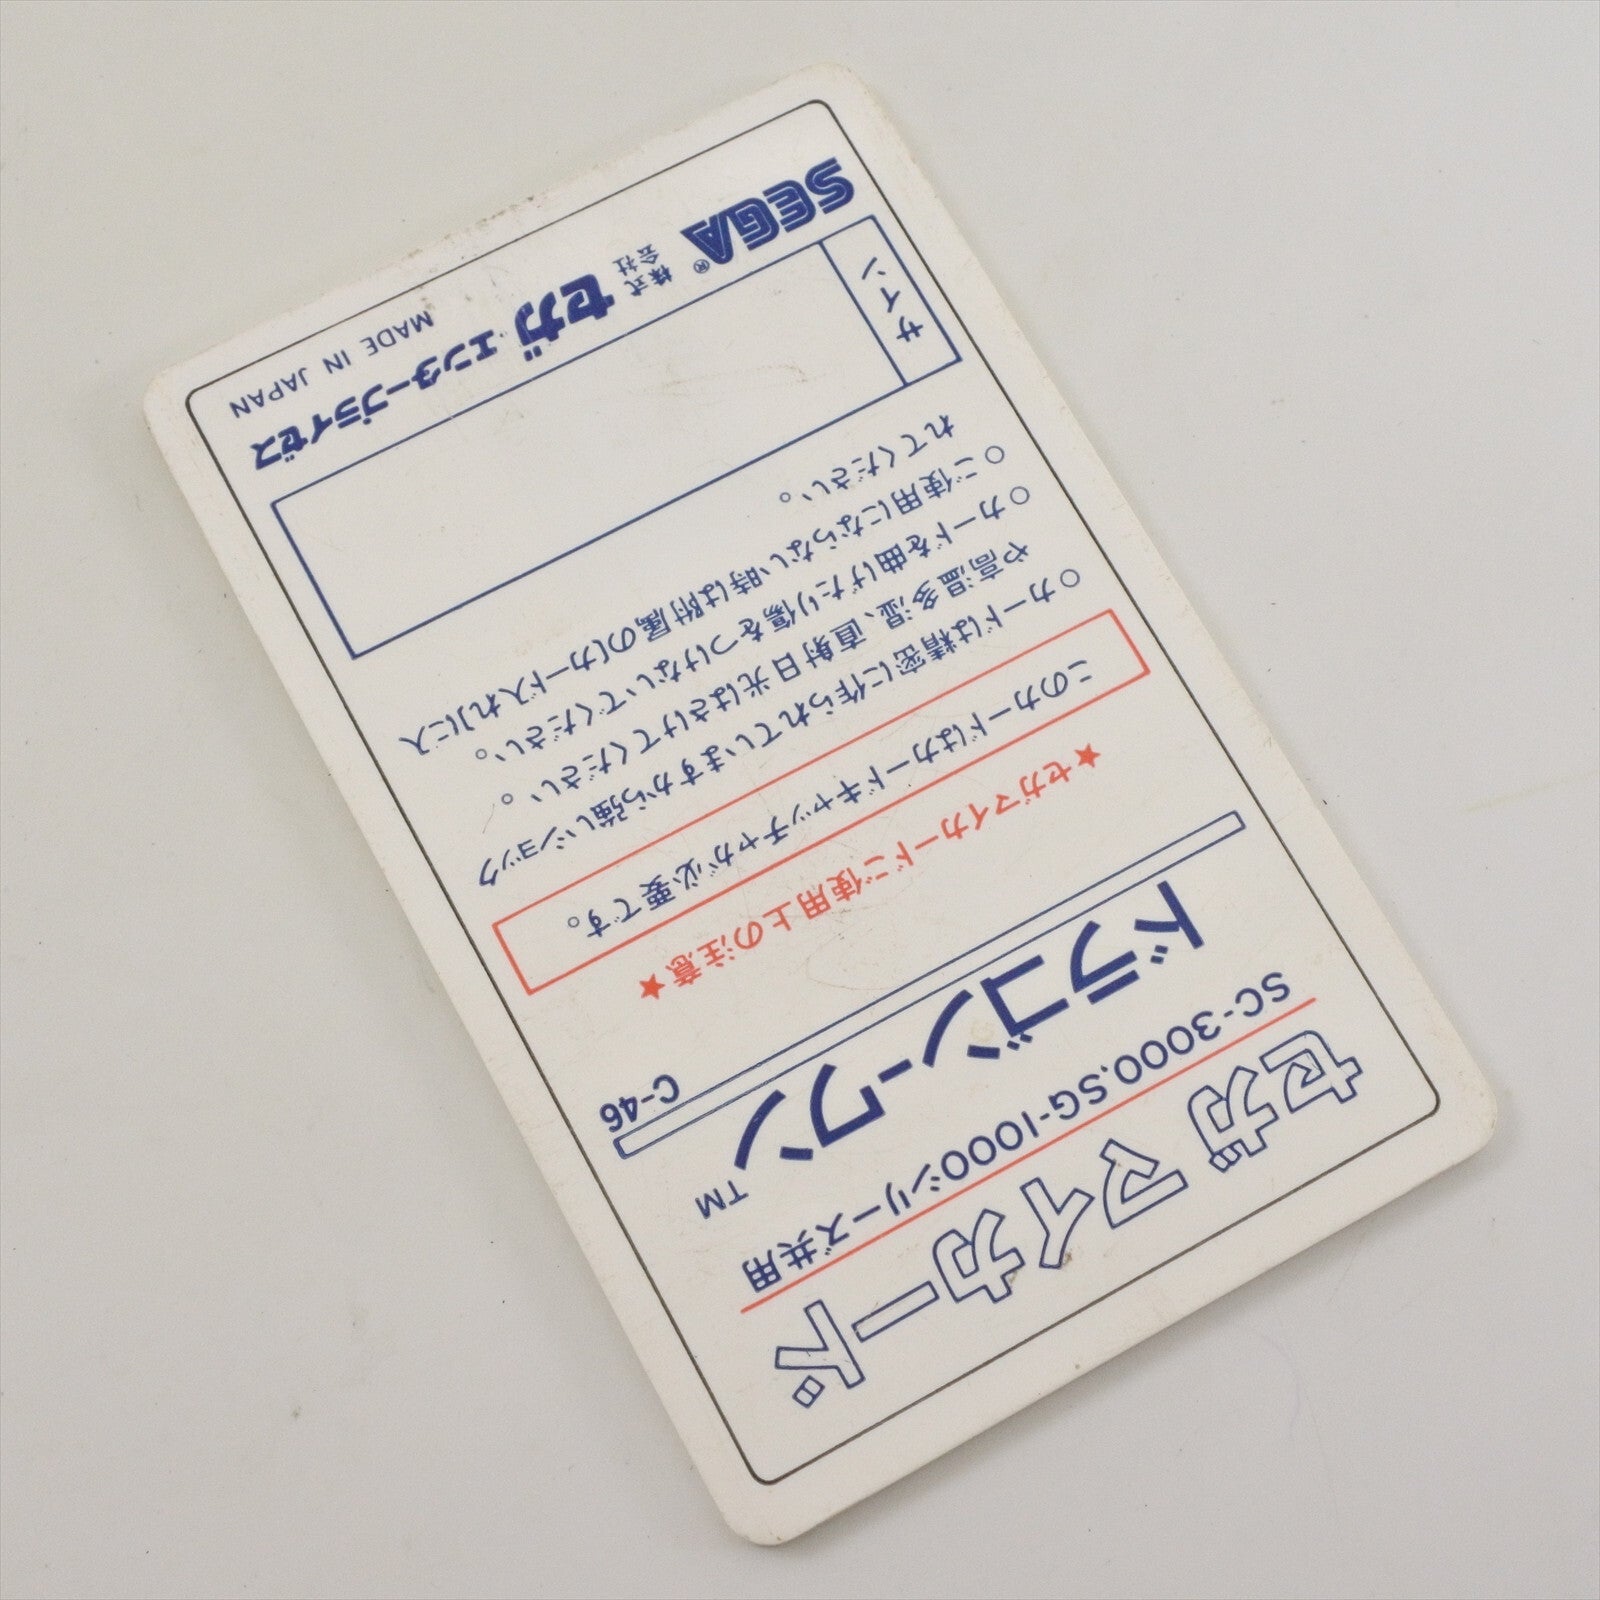 セガ マイカード
SC-3000.SG-1000シリーズ共用
ドラゴン・ワン™
C-46
★セガマイカードご使用上の注意★
このカードはカードキャッチャが必要です。
○カードは精密に作られていますから強いショック
や高温多湿、直射日光はさけてください。
○カードを曲げたり傷をつけないでください。
○ご使用にならない時は附属の[カード入れ]に入
れてください。
サイン
SEGA® 株式会社 セガ・エンタープライゼス
MADE IN JAPAN